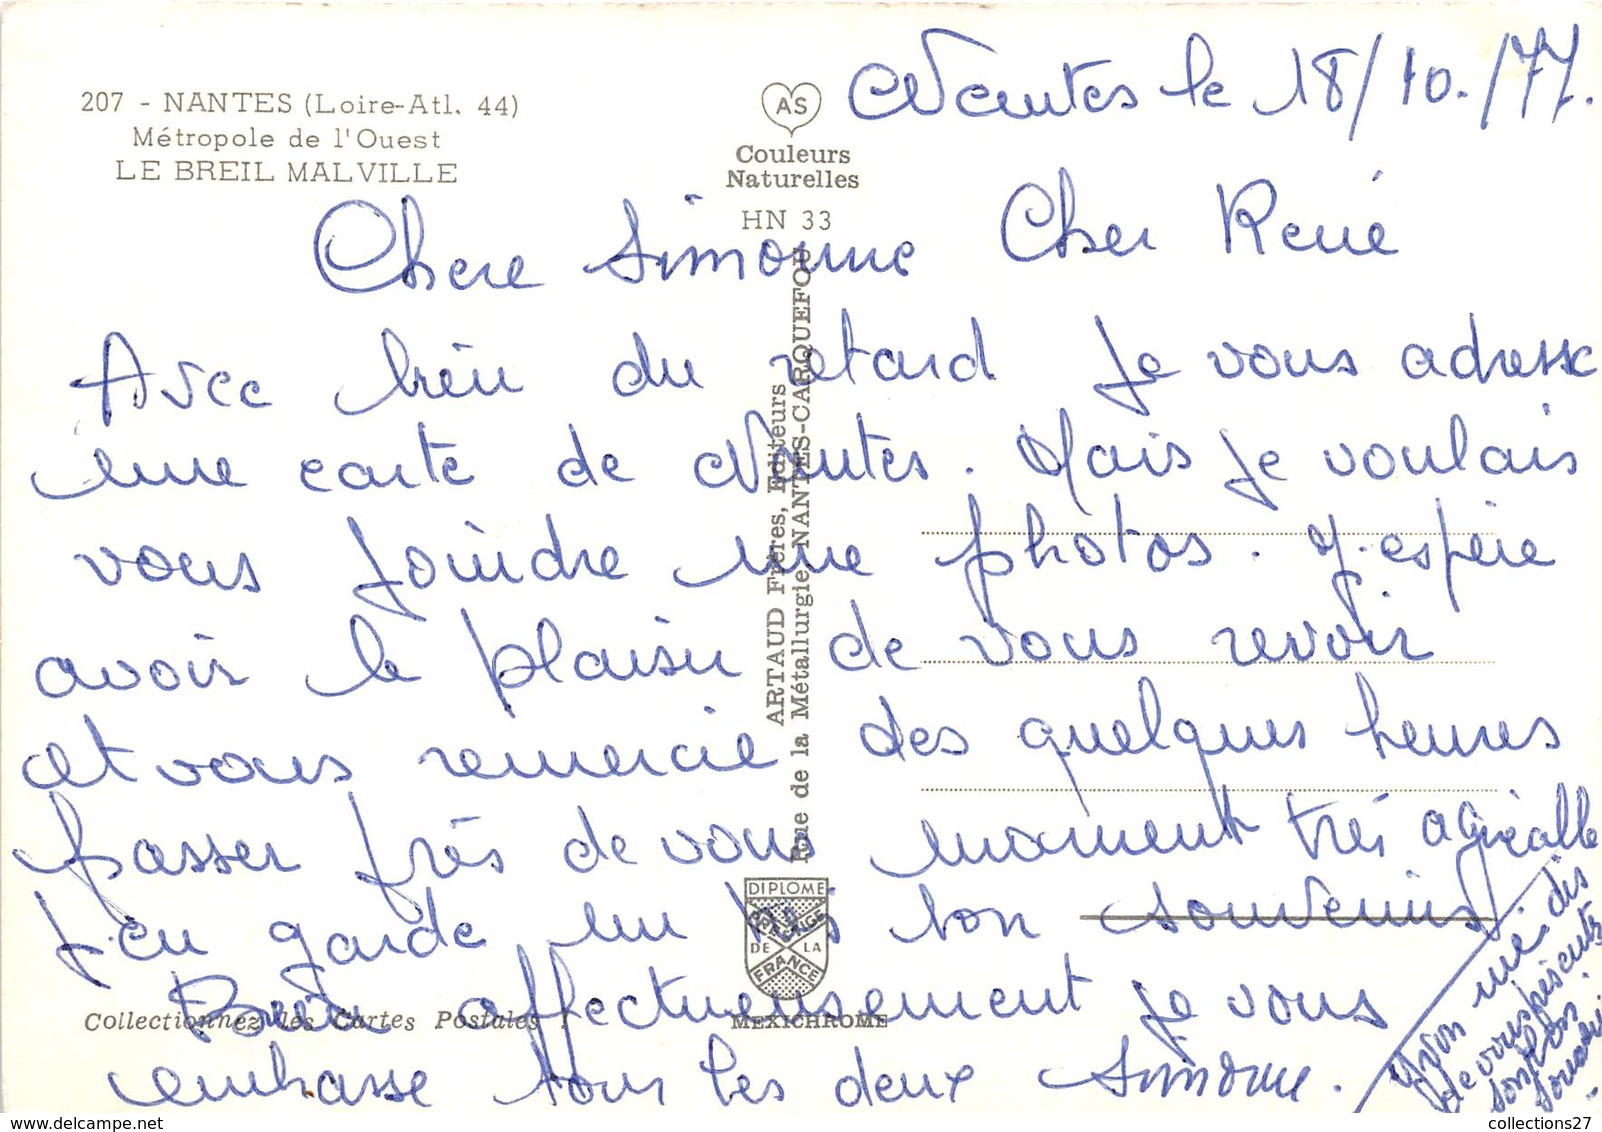 207 - NANTES (Loire-Atl. 44)
Métropole de l'Ouest
LE BREIL MALVILLE
AS
Couleurs
Naturelles
HN 33
Nantes le 18/10./77.
Chere Simonne Cher René
Avec bien du retard je vous adresse
une carte de Nantes. Mais je voulais
vous joindre une photos. J'espère
avoir le plaisir de vous revoir
et vous remercie des quelques heures
passer près de vous moment très agréable
j'en garde un très bon souvenirs
Bien affectueusement je vous
embrasse tous les deux Simone.
Yvon me dis
de vous présents
son bon
souvenir
ARTAUD Frères, Editeurs
Rue de la Métallurgie, NANTES-CARQUEFOU
DIPLOME
PRESTIGE
DE LA
FRANCE
MEXICHROME
Collectionnez les Cartes Postales !
collections27